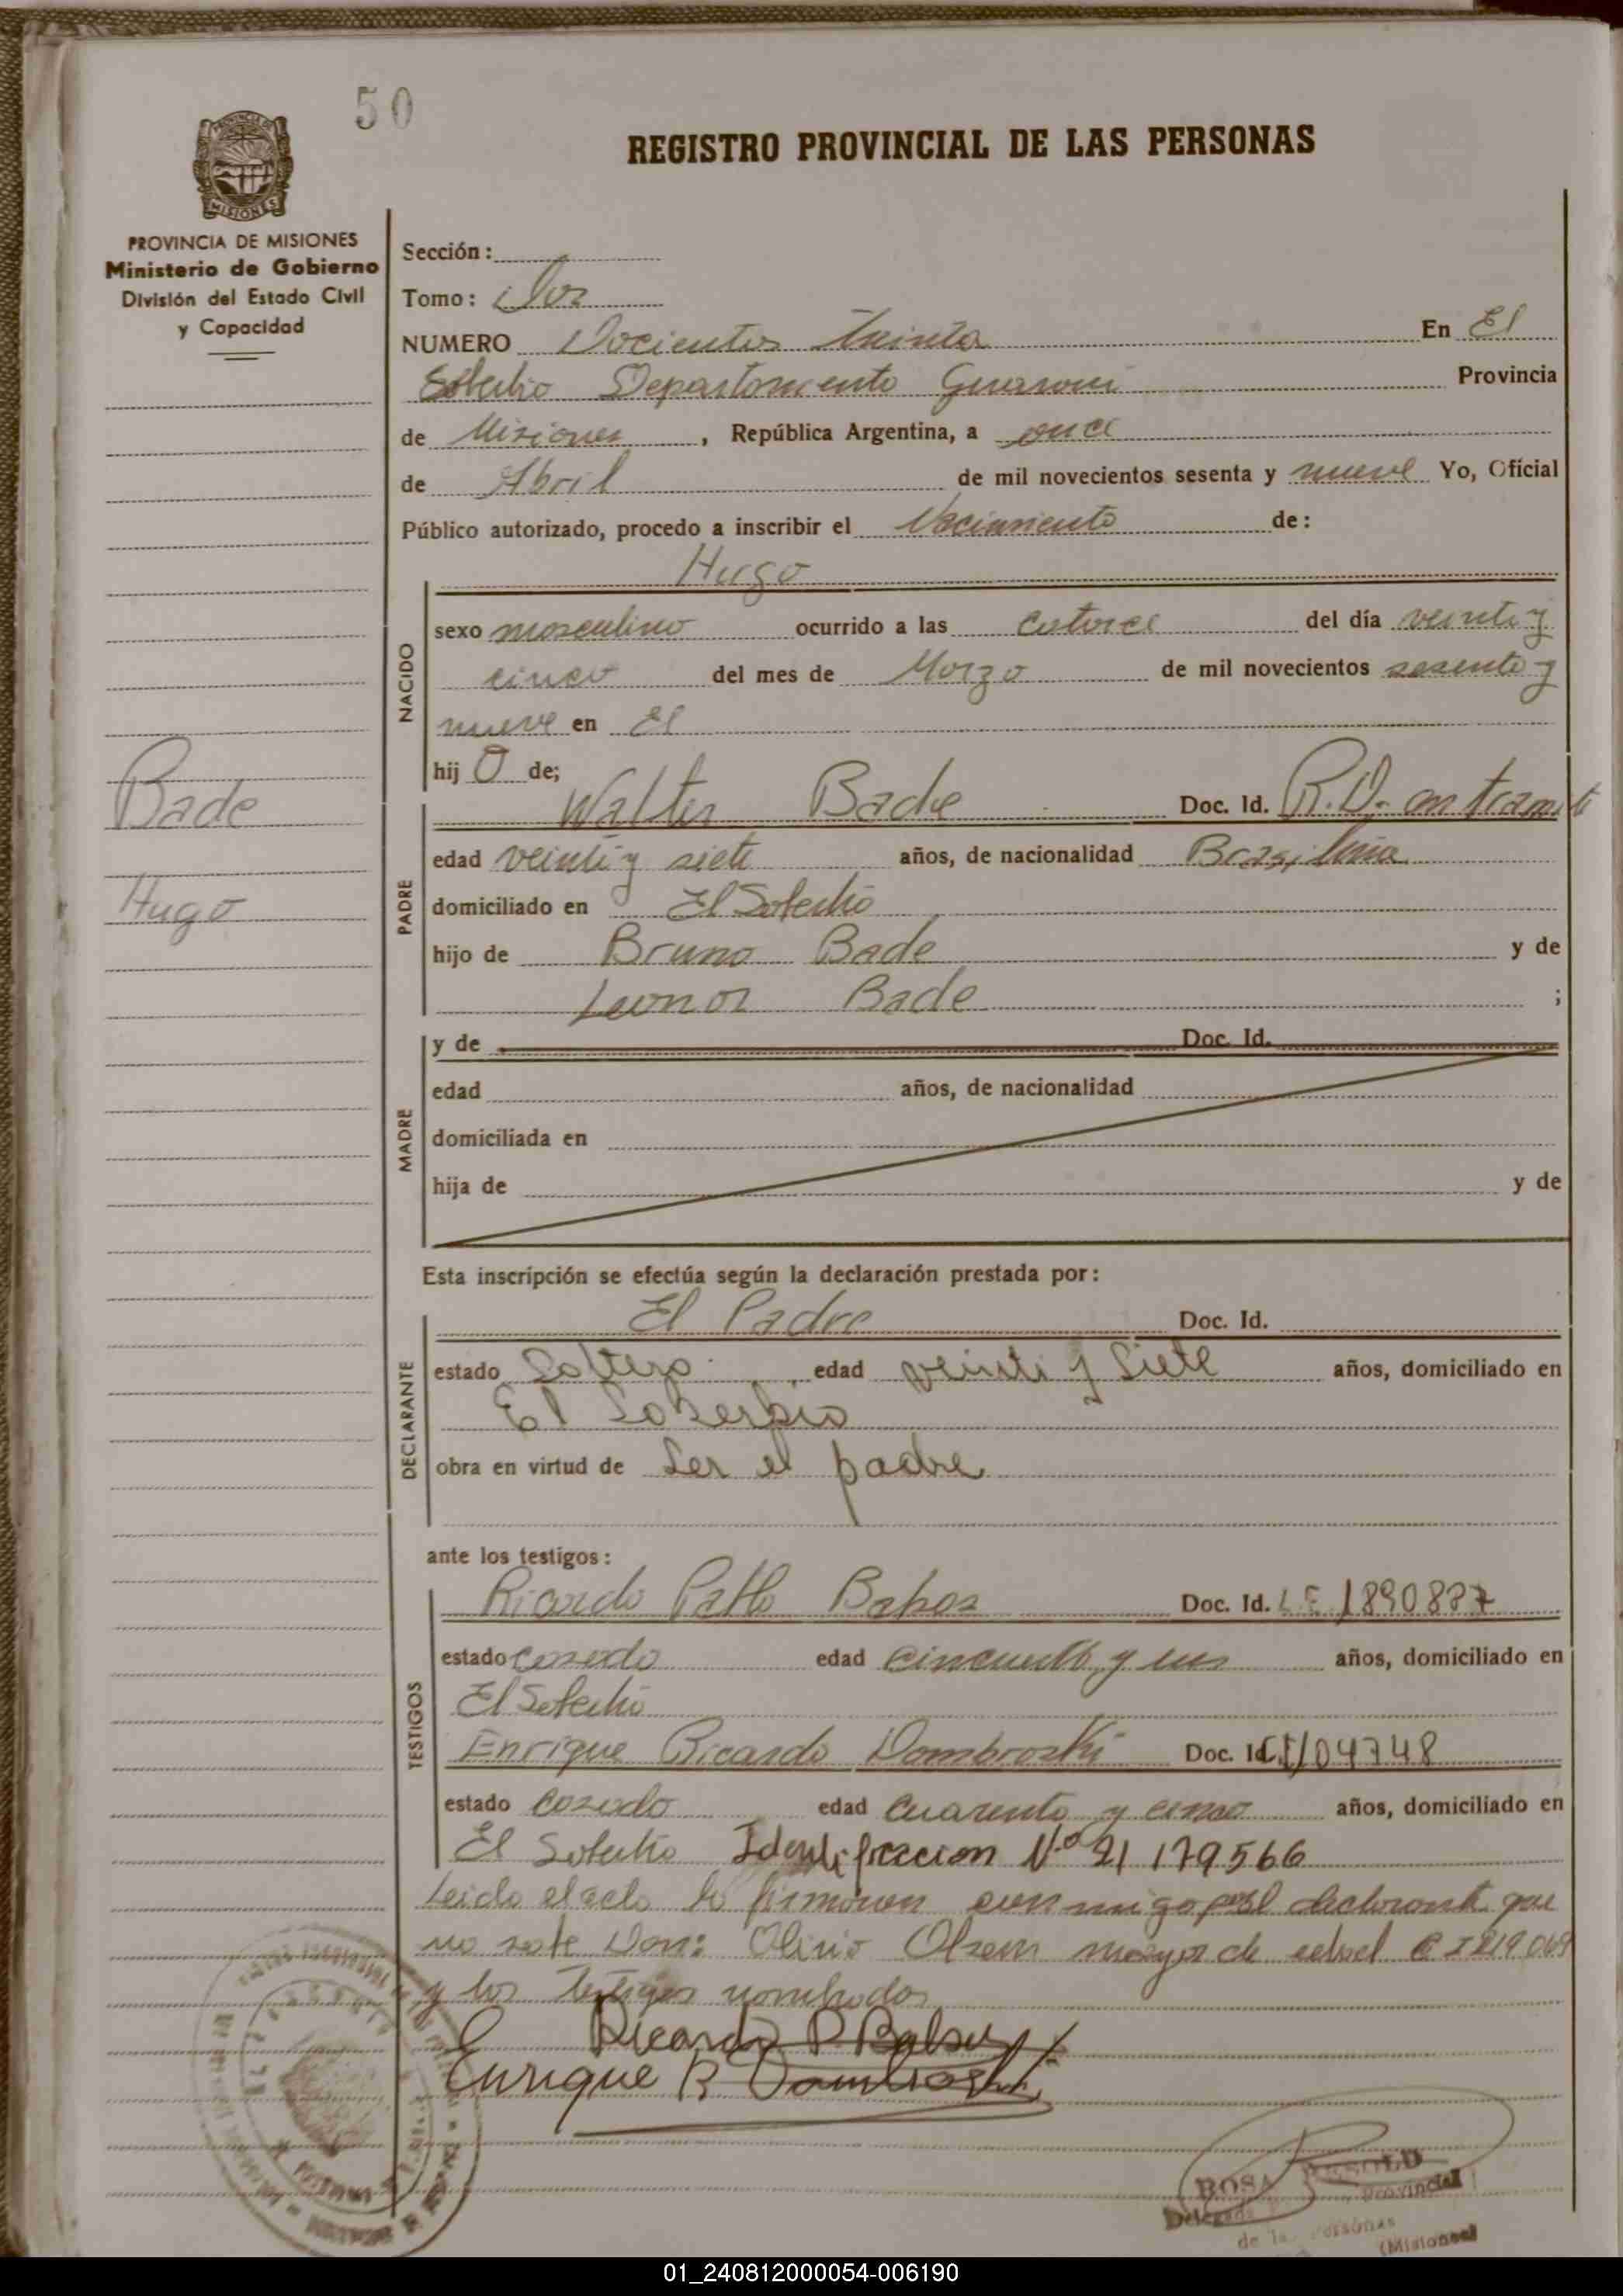 50
REGISTRO PROVINCIAL DE LAS PERSONAS
MISIONES
PROVINCIA DE MISIONES
Ministerio de Gobierno
División del Estado Civil
y Capacidad
Sección:
Tomo: Dos
NUMERO Docientos treinta En El
Departamento Guarani Provincia
de Misiones, República Argentina, a once
de Abril de mil novecientos sesenta y nueve Yo, Oficial
Público autorizado, procedo a inscribir el Nacimiento de:
Hugo
NACIDO
sexo masculino ocurrido a las catorce del día veinte y
cinco del mes de Marzo de mil novecientos sesenta y
nueve en El
hijo de;
Bade
Hugo
PADRE
Walter Bade Doc. Id. R.D. en tramite
edad veinte y siete años, de nacionalidad Brasileña
domiciliado en El Soberbio
hijo de Bruno Bade y de
Leonor Bade ;
MADRE
y de Doc. Id.
edad años, de nacionalidad
domiciliada en
hija de y de
Esta inscripción se efectúa según la declaración prestada por:
DECLARANTE
El Padre Doc. Id.
estado Soltero edad veinti y Siete años, domiciliado en
El Soberbio
obra en virtud de Ser el padre
ante los testigos:
TESTIGOS
Ricardo Pablo Doc. Id. L E 1890887
estado casado edad cincuenta y un años, domiciliado en
El Soberbio
Enrique Ricardo Dombroski Doc. Id. CI 104748
estado casado edad cuarenta y cinco años, domiciliado en
El Soberbio Identificacion Nº 21 179566
Leida el acta la firmaron conmigo por el declarante que
no sabe Don: Olirio Olsem mayor de edad C I 219 069
y los testigos nombrados
Ricardo P.
Enrique R Dombroski
ROSA
Provincial
de las Personas
(Misiones)
01_240812000054-006190